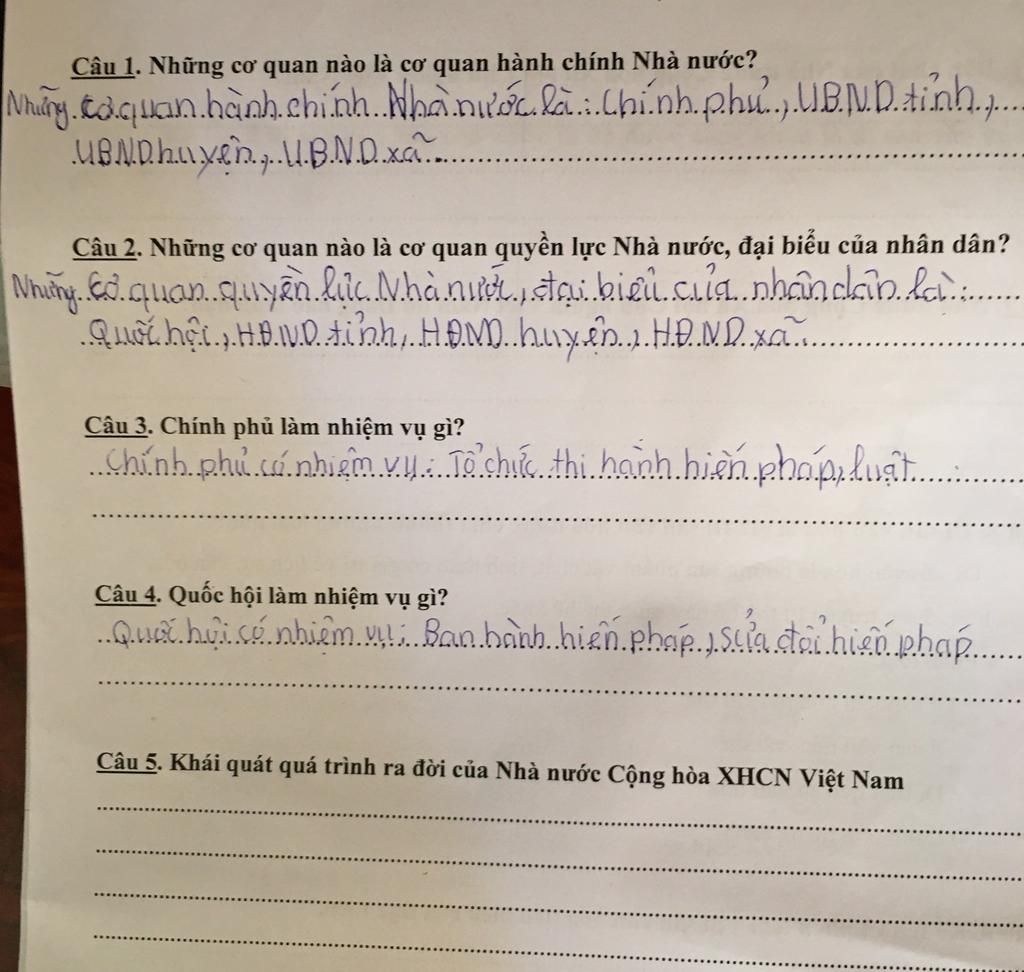 Câu 1. Những cơ quan nào là cơ quan hành chính Nhà nước?
Những cơ quan hành chính Nhà nước là: Chính phủ, UBND tỉnh,
UBND huyện, UBND xã
Câu 2. Những cơ quan nào là cơ quan quyền lực Nhà nước, đại biểu của nhân dân?
Những cơ quan quyền lực Nhà nước, đại biểu của nhân dân là:
Quốc hội, HĐND tỉnh, HĐND huyện, HĐND xã
Câu 3. Chính phủ làm nhiệm vụ gì?
Chính phủ có nhiệm vụ: Tổ chức thi hành hiến pháp, luật
Câu 4. Quốc hội làm nhiệm vụ gì?
Quốc hội có nhiệm vụ: Ban hành hiến pháp, sửa đổi hiến pháp
Câu 5. Khái quát quá trình ra đời của Nhà nước Cộng hòa XHCN Việt Nam